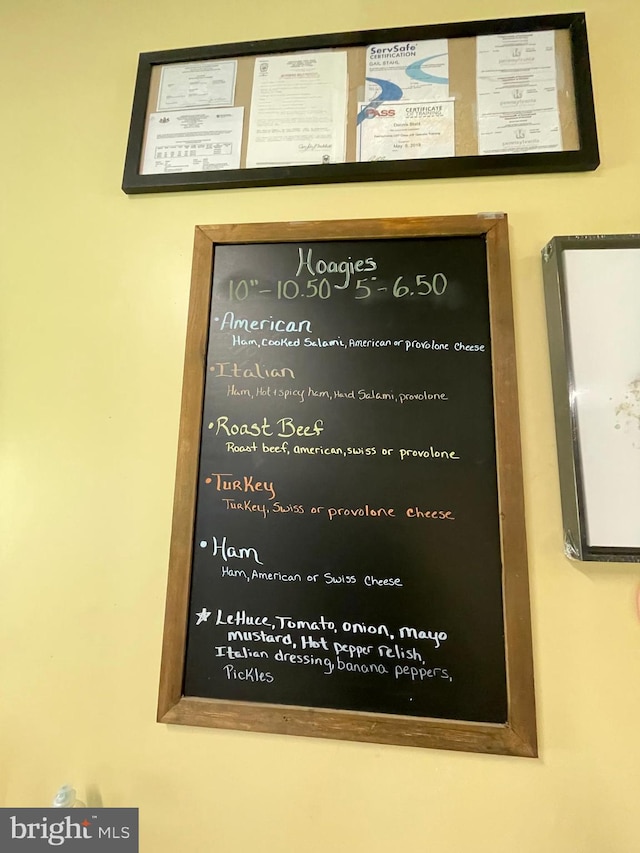 ServSafe
CERTIFICATION
PASS CERTIFICATE
OF TRAINING
May 9, 2019
pennsylvania
Hoagies
10"-10.50 5"-6.50
•American
Ham, Cooked Salami, American or provolone Cheese
•Italian
Ham, Hot + spicy ham, Hard Salami, provolone
•Roast Beef
Roast beef, american, swiss or provolone
•Turkey
Turkey, Swiss or provolone cheese
•Ham
Ham, American or Swiss Cheese
★ Lettuce, Tomato, onion, mayo
mustard, Hot pepper relish,
Italian dressing, banana peppers,
Pickles
bright MLS